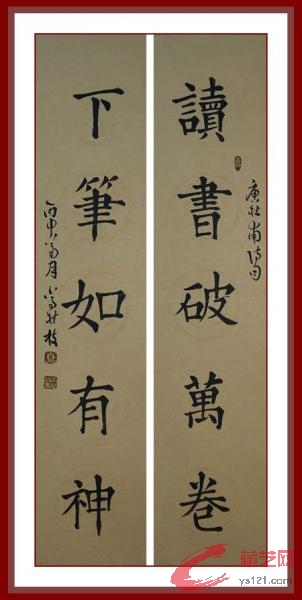 讀書破萬卷
唐杜甫詩句
下筆如有神
丙申
月
枝
藏艺网
ys121.com